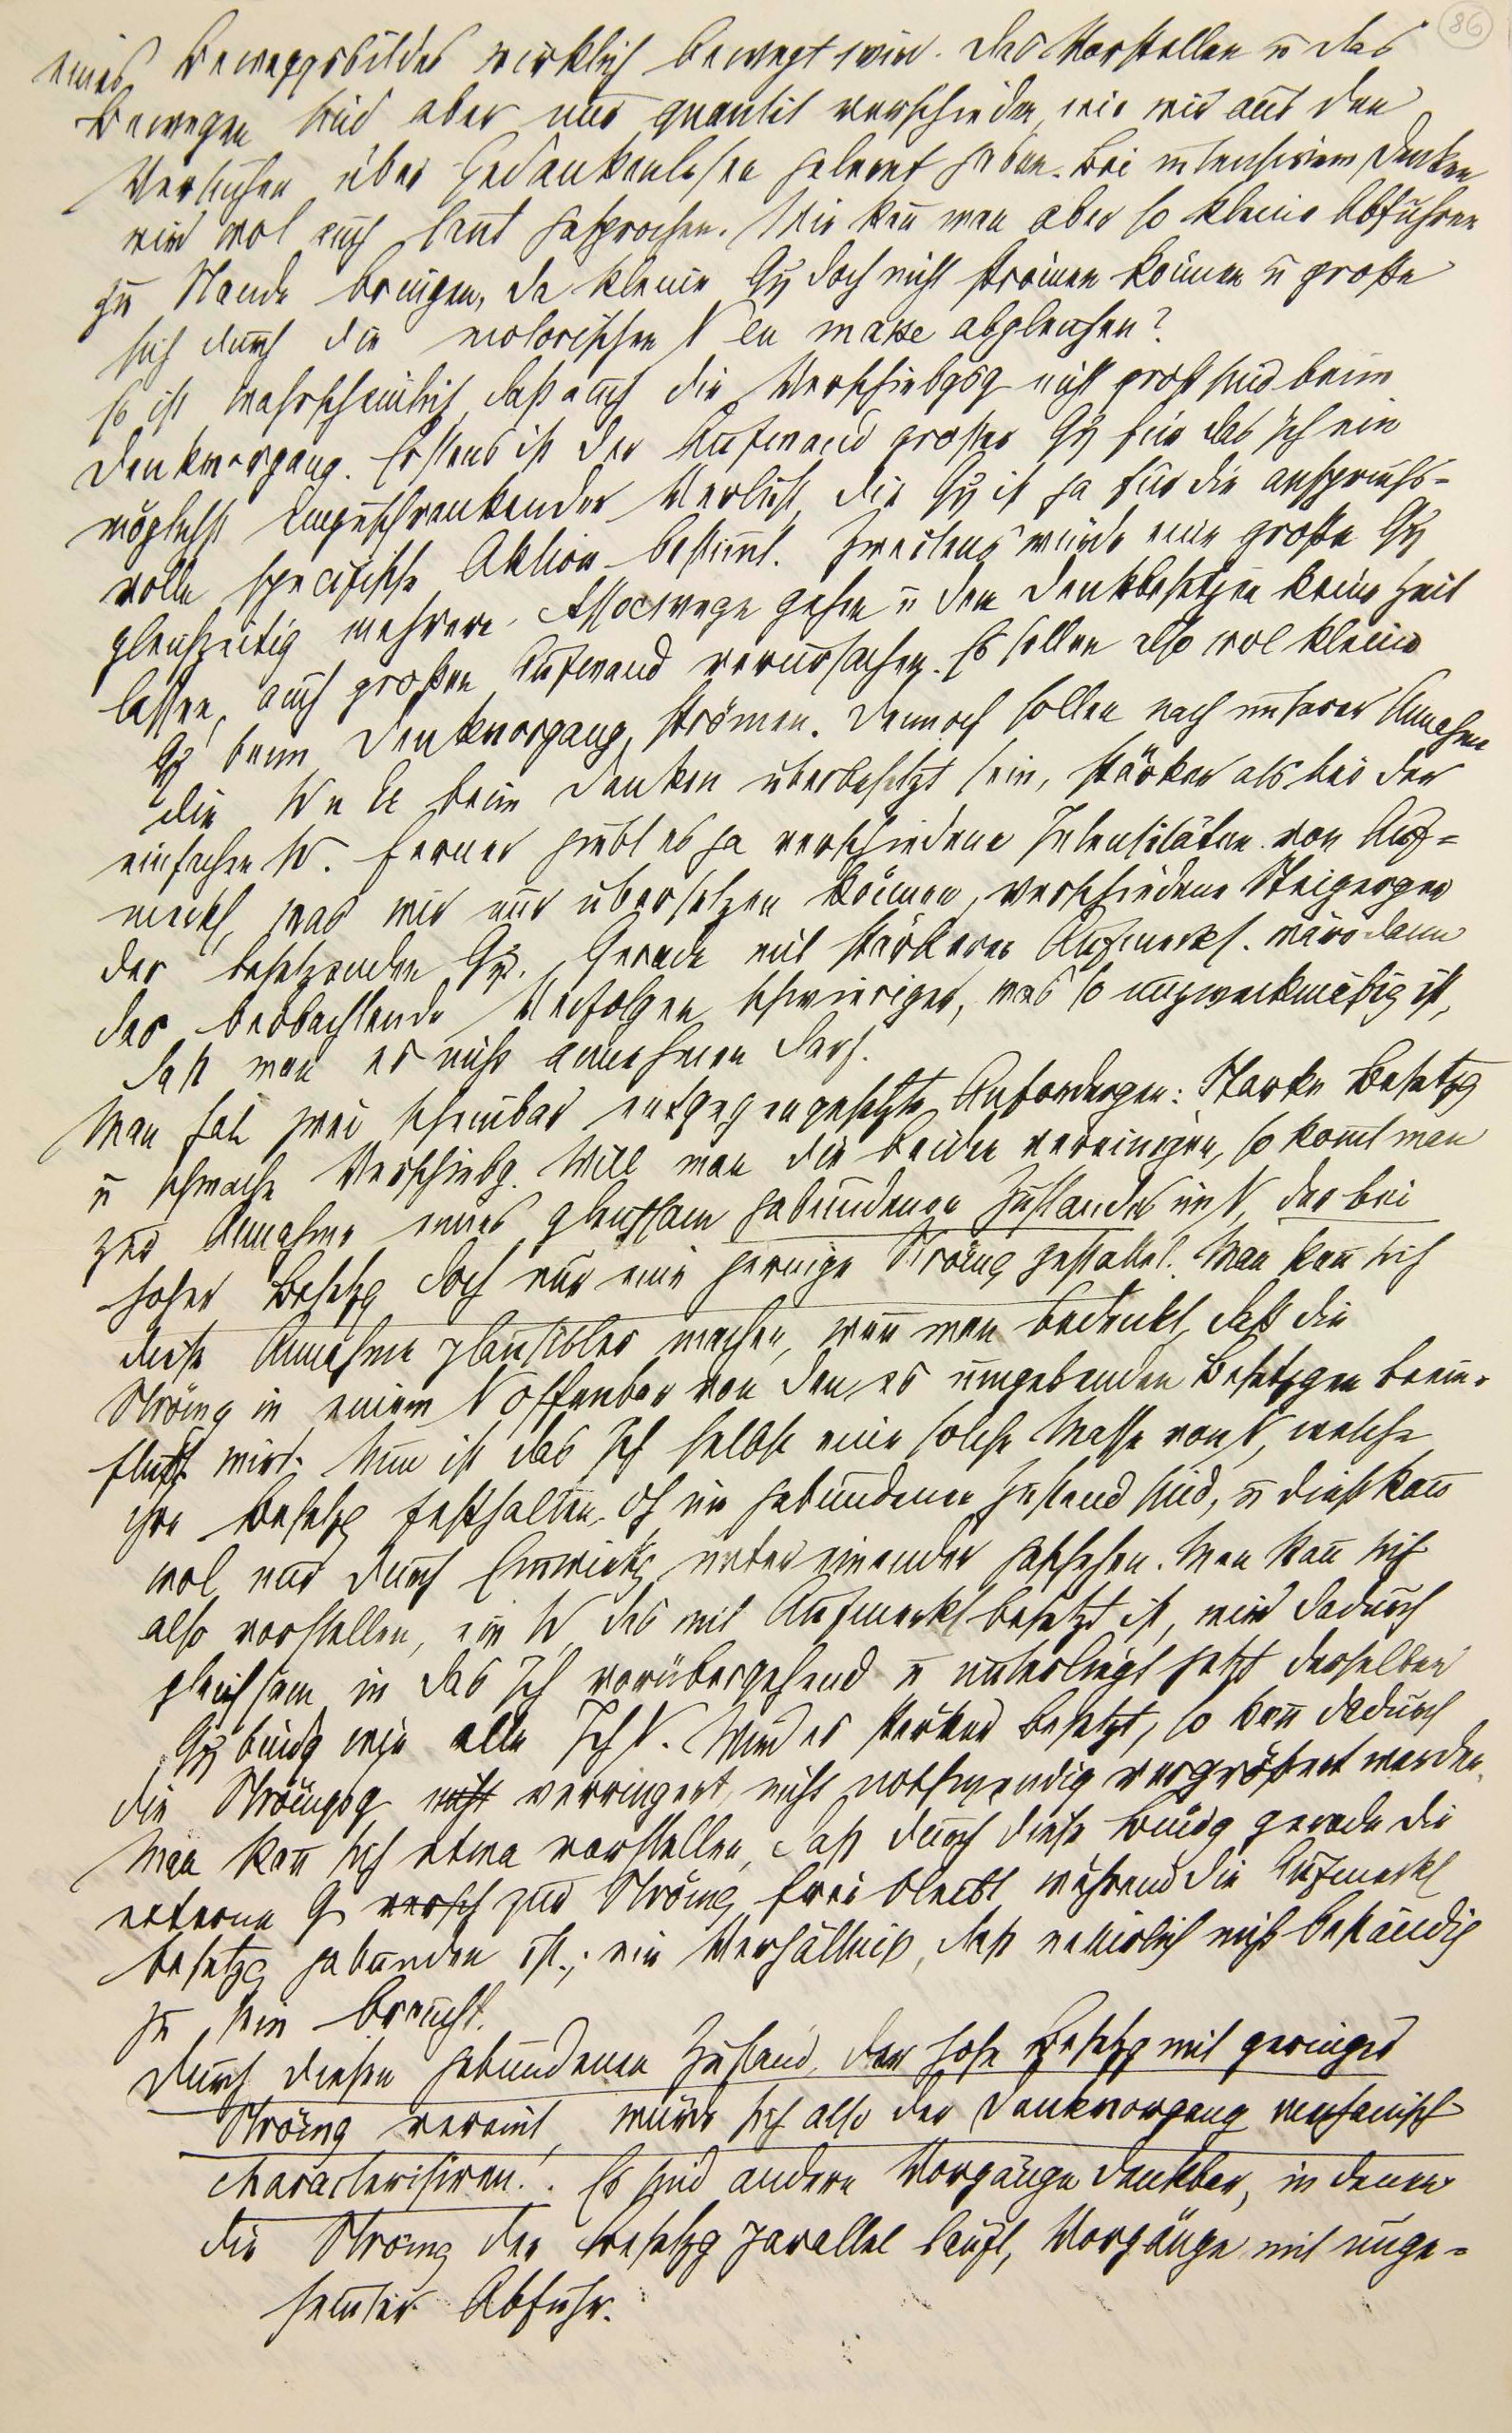 86
eines Bewegungsbildes wirklich bewegt wird. Das Vorstellen u das
Bewegen sind aber nur quantit verschieden, wie wir aus den
Versuchen über Gedankenlesen gelernt haben. Bei intensivem Denken
wird wol auch laut gesprochen. Wie kann man aber so kleine Abfuhren
zu Stande bringen, da kleine Qἠ doch nicht strömen können u große
sich durch die motorischen N en masse abgleichen?
Es ist wahrscheinlich, daß auch die Verschiebgsq nicht groß sind beim
Denkvorgang. Erstens ist der Aufwand großer Qἠ für das Ich ein
möglichst einzuschränkender Verlust, die Qἠ ist ja für die anspruchs-
volle specifische Aktion bestimt. Zweitens würde eine große Qἠ
gleichzeitig mehrere Associwege gehen u den Denkbesetzgen keine Zeit
lassen, auch großen Aufwand verursachen. Es sollen also wol kleine
Qἠ beim Denkvorgang strömen. Dennoch sollen nach unserer Annahme
die W u Er beim Denken überbesetzt sein, stärker als bei der
einfachen W. Ferner giebt es ja verschiedene Intensitäten von Auf=
merks, was wir nur übersetzen können, verschiedene Steigergen
der besetzenden Qἠ. Gerade mit stärkerer Aufmerks. wäre dann
das beobachtende Verfolgen schwieriger, was so unzweckmäßig ist,
daß man es nicht annehmen darf.
Man hat zwei scheinbar entgegengesetzte Anfordergen: Starke Besetzg
u schwache Verschiebg. Will man die beiden vereinigen, so komt man
zur Annahme eines gleichsam gebundenen Zustandes im N, der bei
hoher Besetzg doch nur eine geringe Strömg gestattet. Man kann sich
diese Annahme plausibler machen, wenn man bedenkt, daß die
Strömg in einem N offenbar von den es umgebenden Besetzgen beein-
flußt wird. Nun ist das Ich selbst eine solche Masse von N, welche
ihre Besetzg festhalten, dh im gebundenen Zustand sind, u dieß kann
wol nur durch Einwirkg unter einander geschehen. Man kann sich
also vorstellen, ein W, das mit Aufmerks besetzt ist, wird dadurch
gleichsam in das Ich vorübergehend u unterliegt jetzt derselben
Qἠ bindg wie alle Ich N. Wird es stärker besetzt, so kann dadurch
die Strömgsq nicht verringert, nicht nothwendig vergrößert werden.
Man kann sich etwa vorstellen, daß durch diese Bindg gerade die
externe Q versch zur Strömg frei bleibt, während die Aufmerks
besetzg gebunden ist.; ein Verhältniß, daß natürlich nicht beständig
zu sein braucht.
Durch diesen gebundenen Zustand, der hohe Besetzg mit geringer
Strömg vereint, würde sich also der Denkvorgang mechanisch
characterisiren.. Es sind andere Vorgänge denkbar, in denen
die Strömg der Besetzg parallel läuft, Vorgänge mit unge=
hemter Abfuhr.